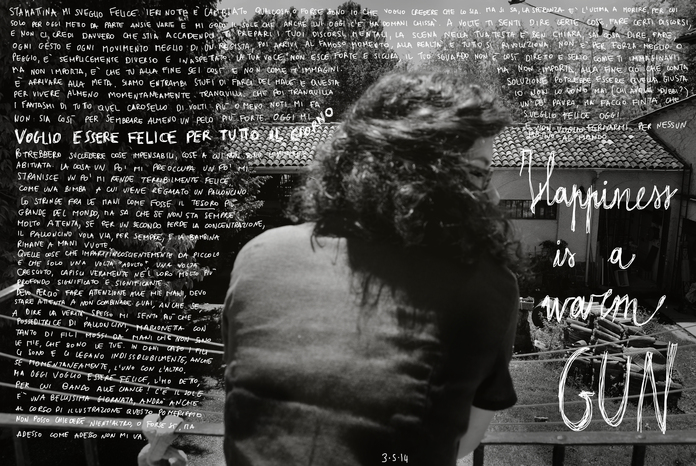 STAMATTINA MI SVEGLIO FELICE. IERI NOTTE È CAMBIATO QUALCOSA
SOLO PER OGGI METTO DA PARTE ANSIE VARIE E MI GODO IL SOLE CHE, ANCHE LUI, OGGI C'È, MA DOMANI CHISSÀ. A VOLTE TI SENTI DIRE CERTE COSE, FARE CERTI DISCORSI,
E NON CI CREDI DAVVERO CHE STIA ACCADENDO. TI PREPARI I TUOI DISCORSI MENTALI, LA SCENA NELLA TUA TESTA È BEN CHIARA, SAI COSA DIRAI, FARAI
OGNI GESTO E OGNI MOVIMENTO MEGLIO DI UN REGISTA. POI ARRIVA IL FAMOSO MOMENTO, ALLA REALTÀ, E TUTTO SI RIVOLUZIONA. NON PER FORZA MEGLIO O
PEGGIO, È SEMPLICEMENTE DIVERSO E INASPETTATO. LA TUA VOCE NON ESCE FORTE E SICURA, IL TUO SGUARDO NON È COSÌ DIRETTO E SENO COME TI IMMAGINAVI.
MA NON IMPORTA, È CHE TU ALLA FINE SEI COSÌ E NON COME T'IMMAGINI
E ARRIVARE ALLA META. SIAMO ENTRAMBI STUFI DI FARCI DEL MALE E QUESTA SOLUZIONE POTREBBE ESSERE QUELLA GIUSTA
PER VIVERE ALMENO MOMENTANEAMENTE TRANQUILLI. CHE POI TRANQUILLA IO NON LO SONO MAI
I FANTASMI DI TUTTO QUEL CAROSELLO DI VOLTI PIÙ O MENO NOTI MI FA UN PO' PAURA, MA FACCIO FINTA CHE
NON SIA COSÌ PER SEMBRARE ALMENO UN PELO PIÙ FORTE. OGGI MI SVEGLIO FELICE OGGI
E NON VOGLIO FERMARMI, PER NESSUN
VOGLIO ESSERE FELICE PER TUTTO IL GIORNO
POTREBBERO SUCCEDERE COSE IMPENSABILI, COSE A CUI NON SONO
ABITUATA. LA COSA UN PO' MI PREOCCUPA, UN PO' MI
STRANISCE, UN PO' MI RENDE TERRIBILMENTE FELICE
COME UNA BIMBA A CUI VIENE REGALATO UN PALLONCINO.
LO STRINGE FRA LE MANI COME FOSSE IL TESORO PIÙ
GRANDE DEL MONDO, MA SA CHE SE NON STA SEMPRE
MOLTO ATTENTA, SE PER UN SECONDO PERDE LA CONCENTRAZIONE,
IL PALLONCINO VOLA VIA, PER SEMPRE, E LA BAMBINA
RIMANE A MANI VUOTE.
QUELLE COSE CHE IMPARI INCOSCIENTEMENTE DA PICCOLO
E CHE SOLO UNA VOLTA "ADULTO", UNA VOLTA
CRESCIUTO, CAPISCI VERAMENTE NEL LORO MEGLIO PIÙ
PROFONDO SIGNIFICATO E SIGNIFICANTE.
DEVO PERCIÒ FARE ATTENZIONE ALLE MIE MANI, DEVO
STARE ATTENTA A NON COMBINARE GUAI, ANCHE SE,
A DIRE LA VERITÀ SPESSO MI SENTO PIÙ CHE
POSSEDITRICE DI PALLONCINI, MARIONETTA CON
TANTO DI FILI MOSSI DA MANI CHE NON SONO
LE MIE, CHE SONO LE TUE. IN OGNI CASO I FILI
CI SONO E CI LEGANO INDISSOLUBILMENTE, ANCHE
SE MOMENTANEAMENTE, L'UNO CON L'ALTRO.
MA OGGI VOGLIO ESSERE FELICE, L'HO DETTO,
PER CUI BANDO ALLE CIANCE! C'È IL SOLE
È UNA BELLISSIMA GIORNATA, ANDRÒ ANCHE
AL CORSO DI ILLUSTRAZIONE QUESTO POMERIGGIO.
NON POSSO CHIEDERE NIENT'ALTRO, O FORSE SÌ, MA
ADESSO COME ADESSO NON MI VA.
Happiness
is a
warm
GUN
3·5·14